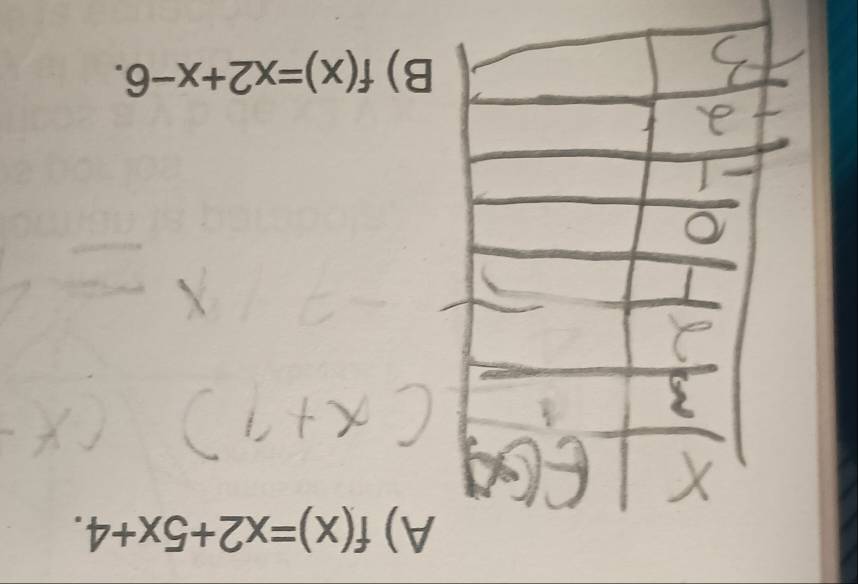 A) f(x)=x2+5x+4.
x F(x)
3
2
1
0
-1
-2
-3
(x+1) (x
B) f(x)=x2+x-6.